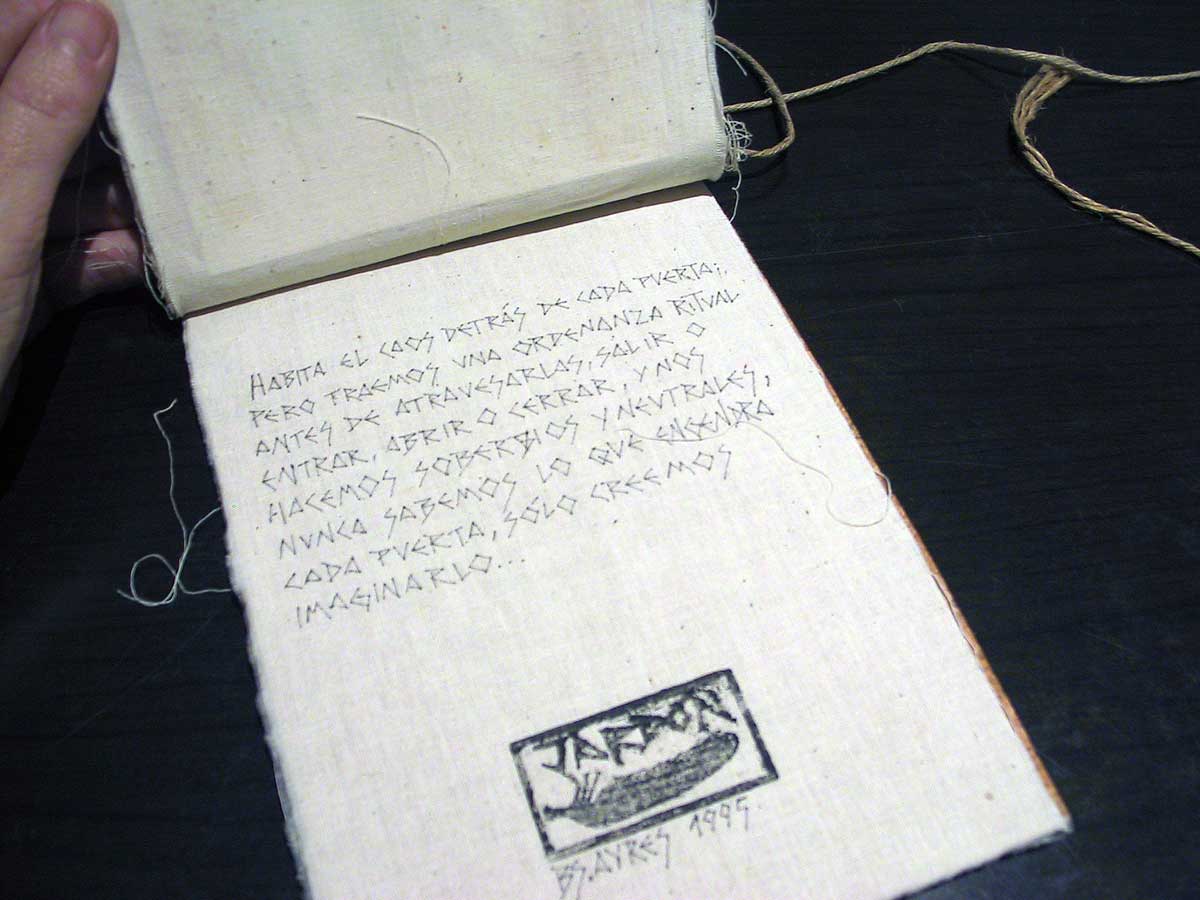 HABITA EL CAOS DETRÁS DE CADA PUERTA;,
PERO TRAEMOS UNA ORDENANZA RITUAL
ANTES DE ATRAVESARLAS, SALIR O
ENTRAR, ABRIR O CERRAR, Y NOS
HACEMOS SOBERBIOS Y NEUTRALES,
NUNCA SABEMOS LO QUE ENGENDRA
CADA PUERTA, SÓLO CREEMOS
IMAGINARLO...
JARDON
BS. AYRES 1995.